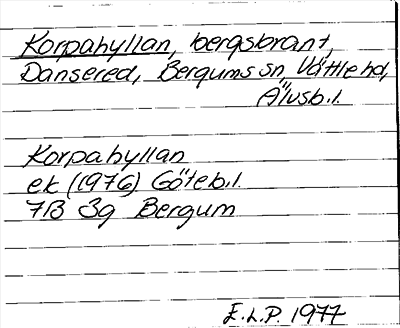 Korpahyllan, bergsbrant,
Dansered, Bergums sn, Vättle hd,
Älvsb.l.
Korpahyllan
ek (1976) Göteb.l.
7B 3g Bergum
E.L.P. 1977